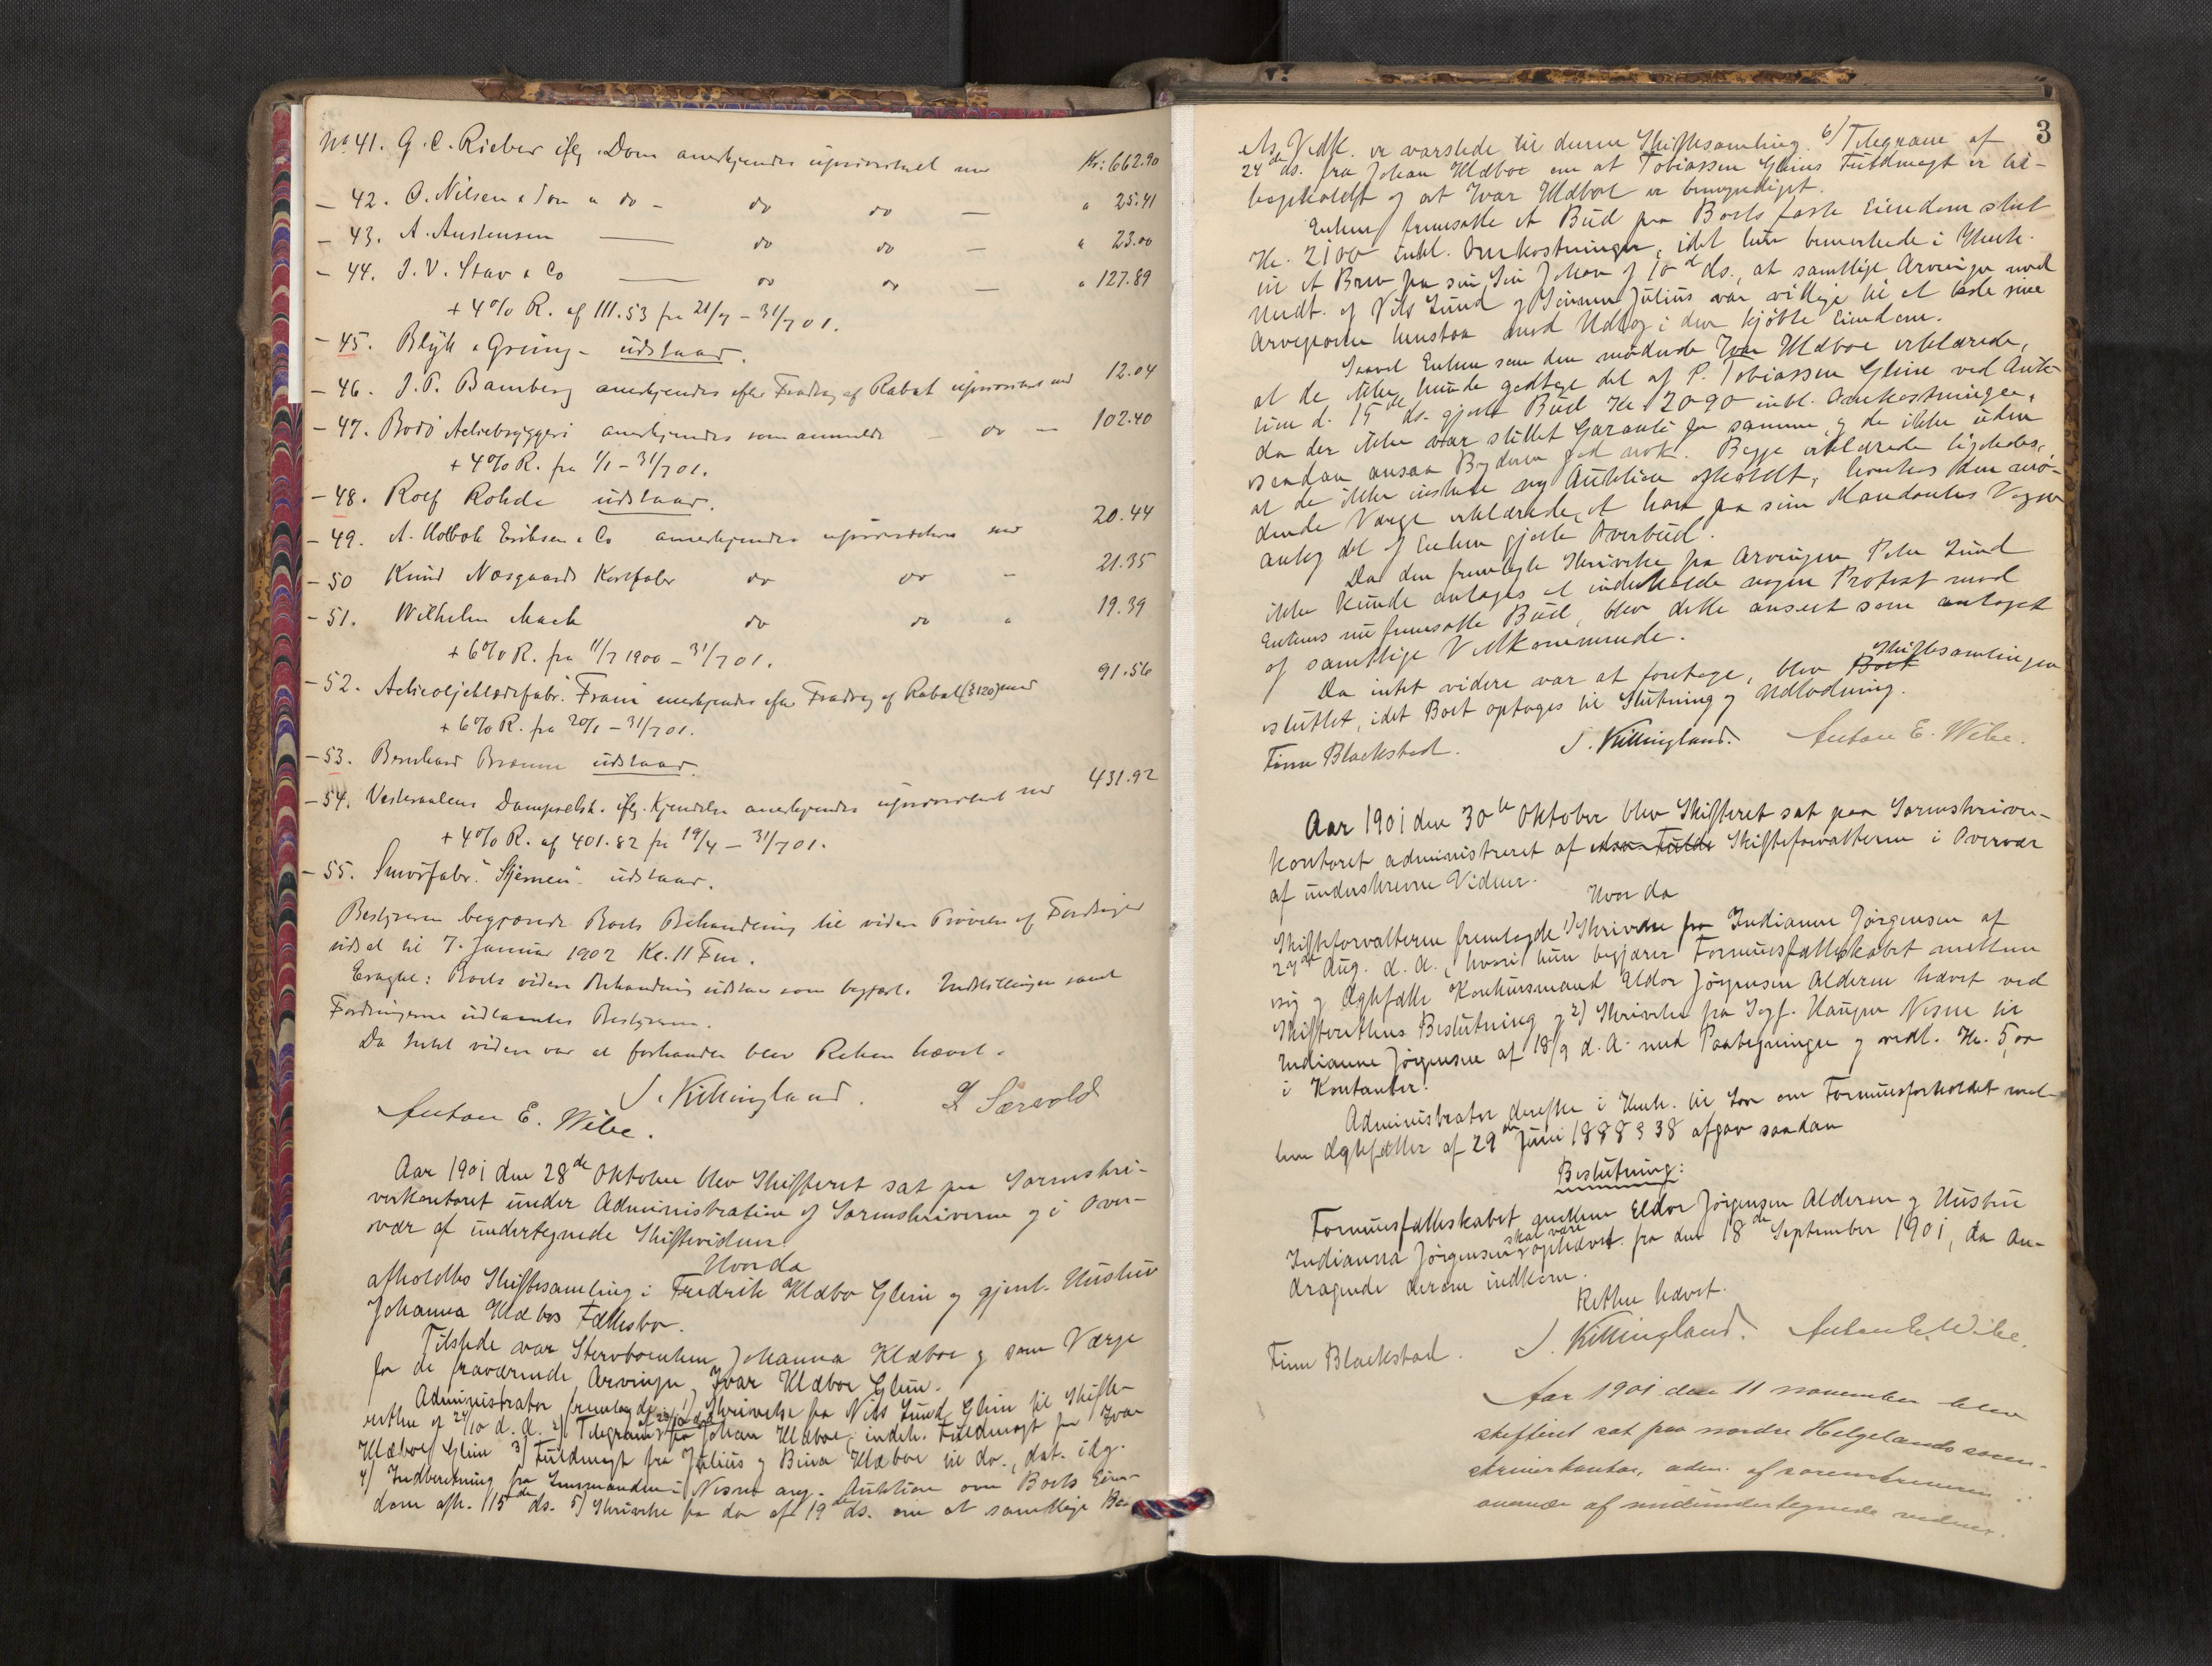 No 41. G. C. Rieber iflg. Dom anerkjendes uprioritert med Kr: 662.90
- 42. O. Nilsen & Søn " do - do do — " 25.41
- 43. A. Austensen — do do — " 23.00
- 44. J. V. Stav & Co — do do — " 127.89
+ 4% R. af 111.53 fra 21/7 - 31/7 01.
- 45. Blijk & Gruing - udstaar.
- 46. J. P. Bamberg anerkjendes efter Fradrag af Rabat uprioritert med 12.04
- 47. Bodö Actiebryggeri anerkjendes som anmeldt - do — 102.40
+ 4% R. fra 1/1 - 31/7 01.
- 48. Rolf Rohde udstaar.
- 49. A. Holbek Eriksen & Co anerkjendes uprioritert med 20.44
- 50 Knud Næsgaards Korkfabr do do - 21.35
- 51. Wilhelm Mack do do " 19.39
+ 6% R. fra 11/7 1900 - 31/7 01.
- 52. Actieoljeklædefabr. Fram anerkjendes efter Fradrag af Rabat (3120) med 91.56
+ 6% R. fra 20/1 - 31/7 01.
- 53. Bernhard Brænne udstaar.
- 54. Vesteraalens Dampselsk. iflg. Kjendelse anerkjendes uprioritert med 431.92
+ 4% R. af 401.82 fra 19/4 - 31/7 01.
- 55. Smörfabr. "Stjernen" udstaar.
Bestyreren begjærede Boets Behandling til videre Prövelse af Fordringer
udsat til 7. Januar 1902 Kl. 11 Fm.
Eragtet: Boets videre Behandling udstaar som begjært. Indstillingen samt
Fordringerne udlaantes Bestyreren.
Da Intet videre var at forhandle blev Retten hævet.
S. Killingland. L Sørvold
Anton E. Wibe.
Aar 1901 den 28de Oktober blev Skifteret sat paa Sorenskri-
verkontoret under Administration af Sorenskriveren og i Over-
vær af undertegnede Skiftevidner
Hvorda
afholdtes Skiftesamling i Fredrik Klæbo Glein og gjenl. Hustru
Johanna Klæbos Fællesbo.
Tilstede var Stervboenken Johanna Klæboe og som Værge
for de fraværende Arvinger, Ivar Klæboe Glein.
Administrator fremlagde 1) Skrivelse fra Nils Lund Glein til Skifte-
retten af 24/10 d. A. 2) Telegram af 23/10 d. A. fra Johan Klæboe, indeh. Fuldmagt for Ivar
Klæboe Glein 3) Fuldmagt fra Julius og Bina Klæboe til do., dat. idg.
4) Indberetning fra Lensmanden i Nesne ang. Auktion over Boets Eien-
dom afh. 15de ds. 5) Skrivelse fra do af 19de ds. om at samtlige Bo-
3
ets Vedk. er varslede til denne Skiftesamling. 6) Telegram af
24de ds. fra Johan Klæboe om at Tobiassen Gleins Fuldmagt er til-
bagekaldt og at Ivar Klæboe er bemyndiget.
Enken fremsatte et Bud paa Boets faste Eiendom stort
Kr. 2100 inkl. Omkostninger, idet hun bemerkede i Henh.
til et Brev fra sin Søn Johan af 10de ds., at samtlige Arvinger med
Undt. af Nils Lund og Sønnen Julius var villige til at lade sine
Arveparter henstaa mod Udlæg i den kjøbte Eiendom.
Saavel Enken som den mødende Ivar Klæboe erklærede,
at de ikke kunde godtage det af P. Tobiassen Glein ved Auk-
tion d. 15de ds. gjorte Bud Kr. 2090 inkl. Omkostninger,
da der ikke var stillet Garanti for samme, og de ikke uden
saadan ansaa Byderen god nok. Begge erklærede ligeledes,
at de ikke ønskede ny Auktion afholdt, hvorhos den mø-
dende Værge erklærede, at han paa sine Mandanters Vegne
antog det af Enken gjorte Overbud.
Da den fremlagte Skrivelse fra Arvingen Peter Lund
ikke kunde antages at indeholde nogen Protest mod
Enkens nu fremsatte Bud, blev dette anseet som antaget
af samtlige Vedkommende.
Da intet videre var at foretage, blev Boet Skiftesamlingen
sluttet, idet Boet optages til Slutning og Udlodning.
Finn Blackstad. S. Killingland. Anton E. Wibe.
Aar 1901 den 30te Oktober blev Skifteret sat paa Sorenskriver-
kontoret administreret af Skifteforvalteren i Overvær
af underskrevne Vidner.
Hvorda
Skifteforvalteren fremlagde 1) Skrivelse fra Indianna Jørgensen af
27de Aug. d. A., hvori hun begjærer Formuesfællesskabet mellem
sig og Ægtefælle Konkursmand Eldor Jørgensen Alderen hævet ved
Skifterettens Beslutning og 2) Skrivelse fra Sagf. Haugen Nesne til
Indianna Jørgensen af 18/9 d. A. med Paategninger og vedl. Kr. 5,00
i Kontanter.
Administrator derefter i Henh. til Lov om Formuesforholdet mel-
lem Ægtefæller af 29de Juni 1888 § 38 afgav saadan
Beslutning:
Formuesfællesskabet mellem Eldor Jørgensen Alderen og Hustru
Indianna Jørgensen skal være ophævet fra den 18de September 1901, da An-
dragende derom indkom.
Retten hævet.
Finn Blackstad. S. Killingland. Anton E. Wibe.
Aar 1901 den 11 november blev
skifteret sat paa nordre Helgelands soren-
skriverkontor, adm. af sorenskriveren i
overvær af medundertegnede vidner.